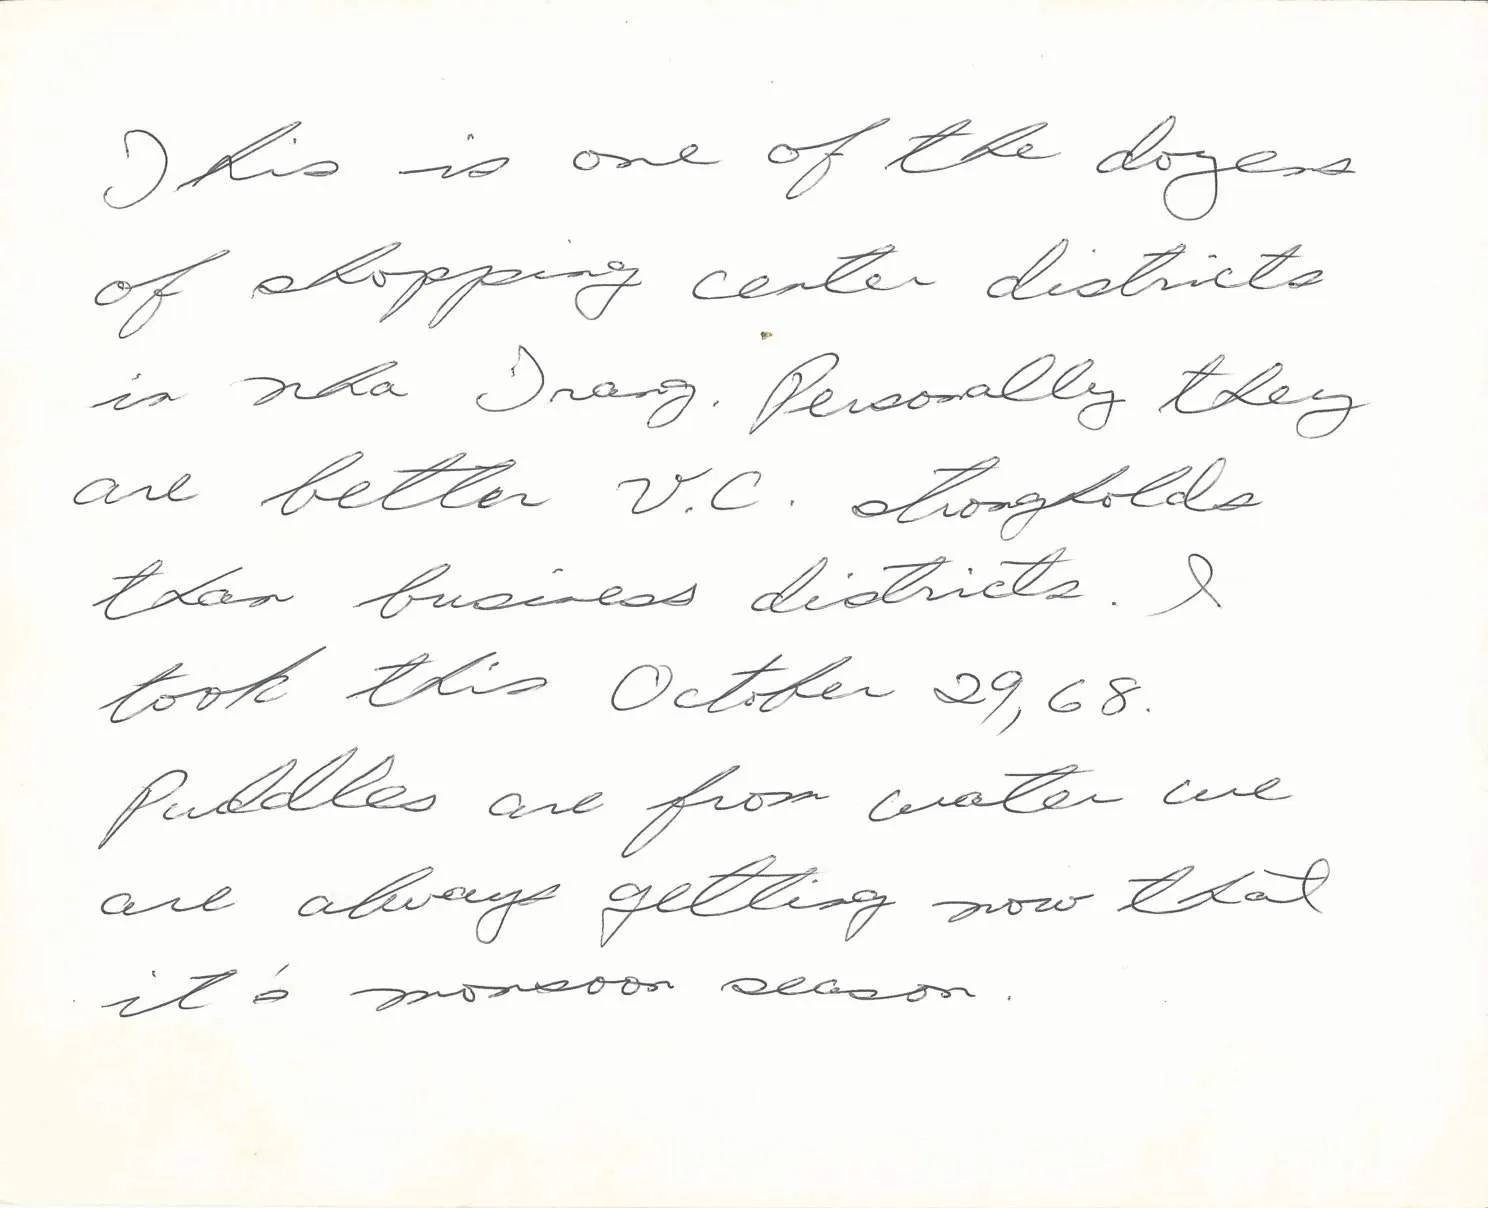 This is one of the dozens
of shopping center districts
in nha Trang. Personally they
are better V.C. strongholds
than business districts. I
took this October 29, 68.
Puddles are from water we
are always getting now that
it's monsoon season.